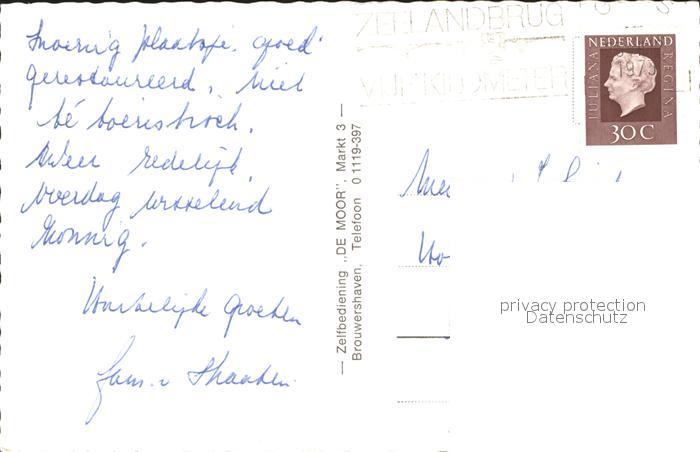 Snoezig plaatsje. goed
gerestaureerd, niet
té toeristisch.
Weer redelijk,
overdag wisselend
zonnig.
Hartelijke groeten
fam. v
— Zelfbediening „DE MOOR”, Markt 3 —
Brouwershaven, Telefoon 0 1119-397
ZEELANDBRUG
VIJF KILOMETER
NEDERLAND
JULIANA
REGINA
30 C
privacy protection
Datenschutz